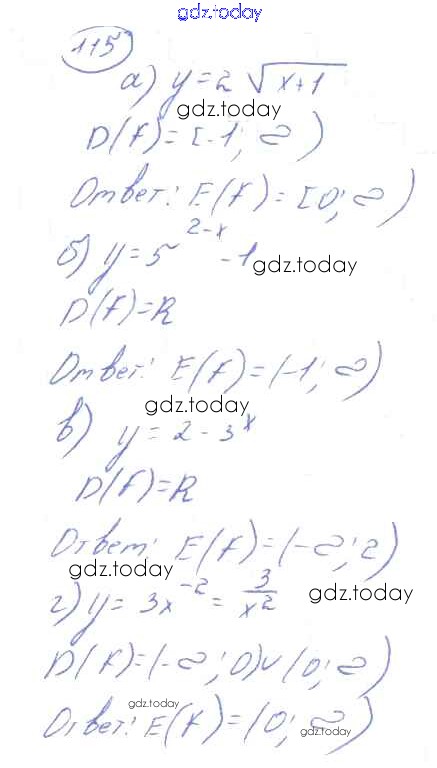 gdz.today
115
а) y = 2 √x+1
gdz.today
D(f) = [-1; ∞)
Ответ: E(f) = [0; ∞)
б) y = 5^(2-x) - 1
gdz.today
D(f) = R
Ответ: E(f) = (-1; ∞)
gdz.today
в) y = 2 - 3^x
D(f) = R
Ответ: E(f) = (-∞; 2)
gdz.today
г) y = 3x^(-2) = 3/x^2
gdz.today
D(f) = (-∞; 0) ∪ (0; ∞)
gdz.today
Ответ: E(f) = (0; ∞)
gdz.today